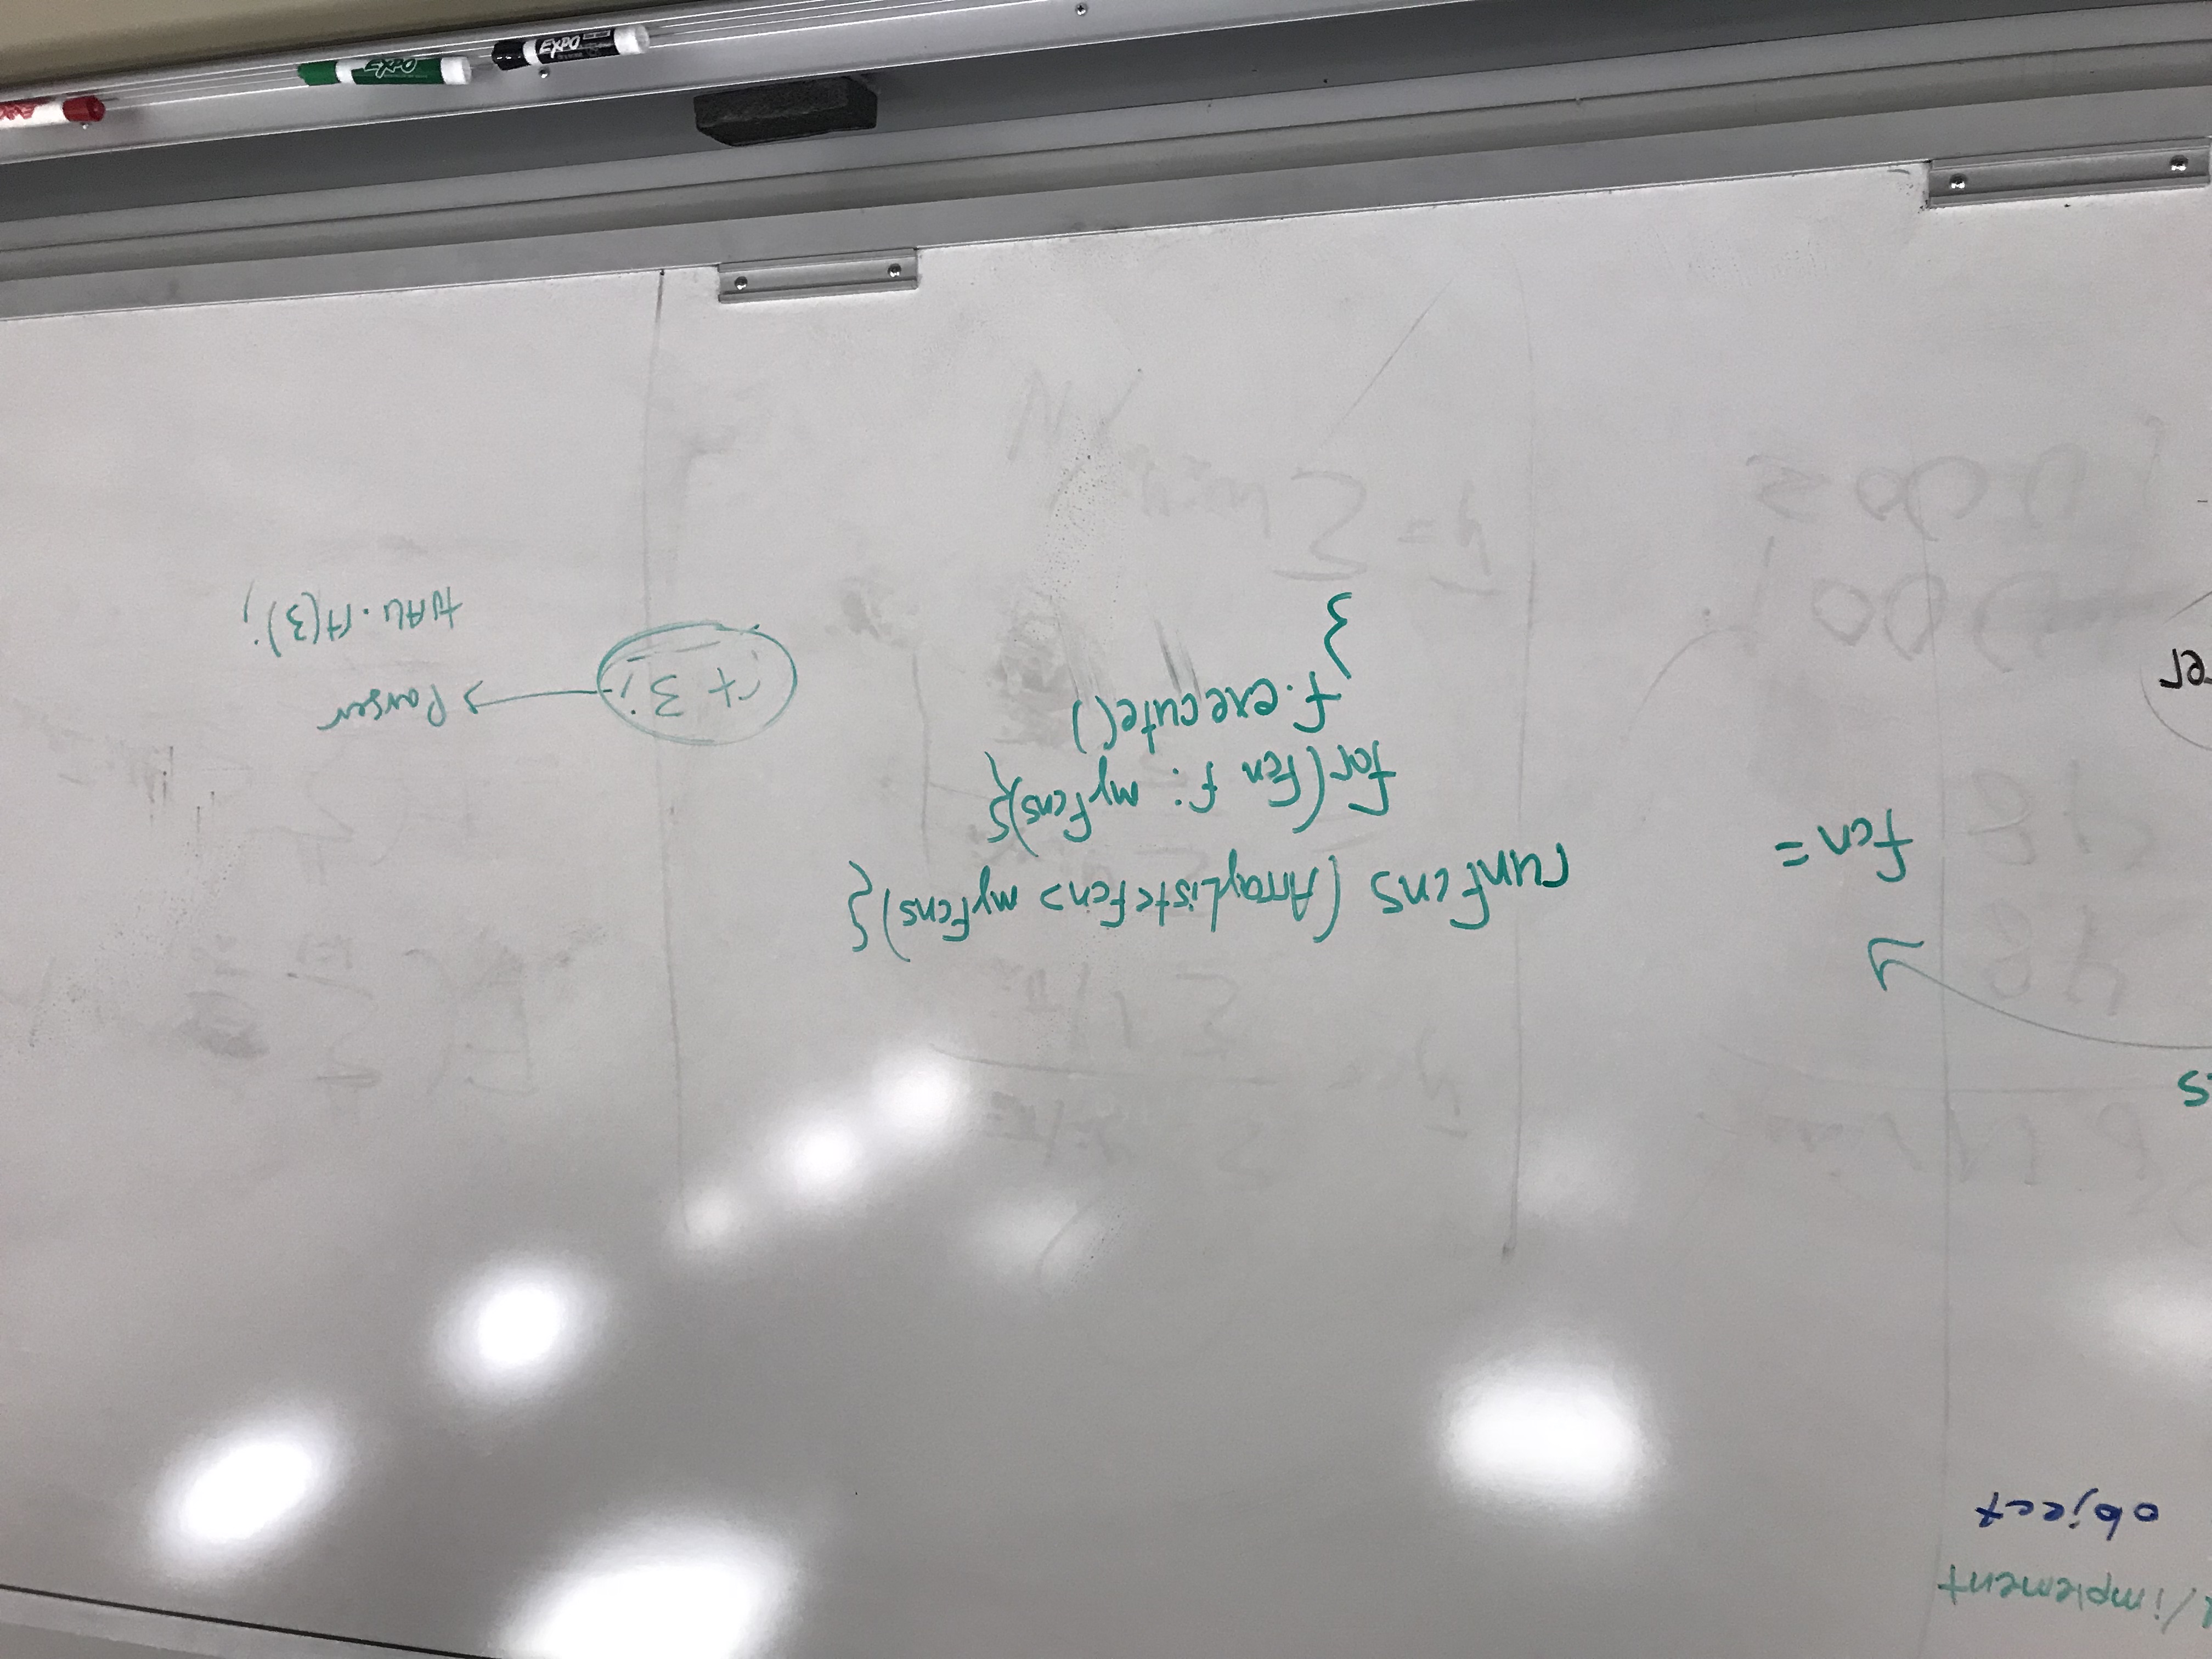 /implement
object
s
fcn =
runFcns (ArrayList<Fcn> myFcns) {
for(Fcn f: myFcns){
f.execute()
}
er
rt 3;
Parser
.rt(3);
EXPO
EXPO